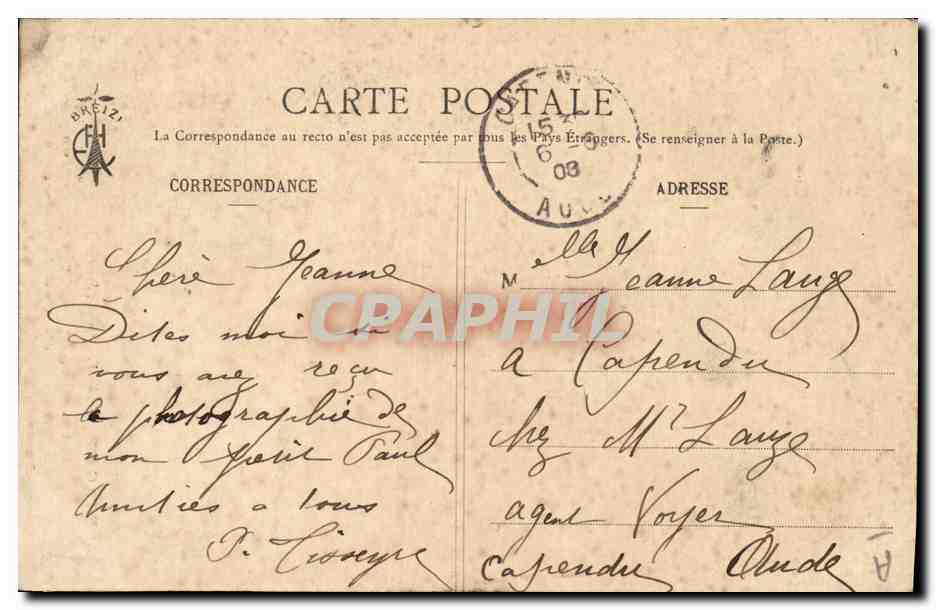 CARTE POSTALE
La Correspondance au recto n'est pas acceptée par tous les Pays Étrangers. (Se renseigner à la Poste.)
BREIZ
CORRESPONDANCE
Chère Jeanne
Dites moi si
vous avez reçu
la photographie de
mon petit Paul
Amitiés a tous
P. Tisseyre
15
6 -
08
AUDE
ADRESSE
Melle Jeanne Lauze
a Capendu
chez Mr Lauze
agent Voyer
Capendu Aude
CPAPHIL
A